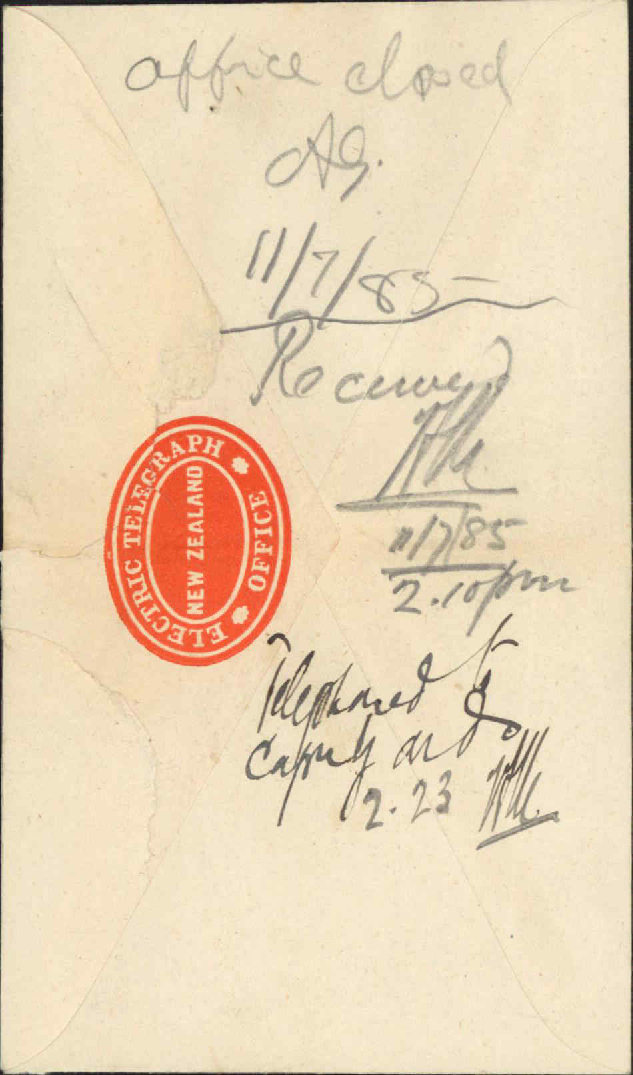 office closed
AG.
11/7/85
Received
11/7/85
2.10pm
ELECTRIC TELEGRAPH OFFICE
NEW ZEALAND
Telephoned to
2.23